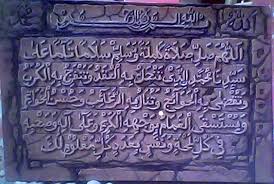 اللهم صل صلاة كاملة وسلم سلاما تاما على
سيدنا محمد الذي تنحل به العقد وتنفرج به الكرب
وتقضى به الحوائج وتنال به الرغائب وحسن الخواتم
ويستسقى الغمام بوجهه الكريم وعلى آله وصحبه
في كل لمحة ونفس بعدد كل معلوم لك